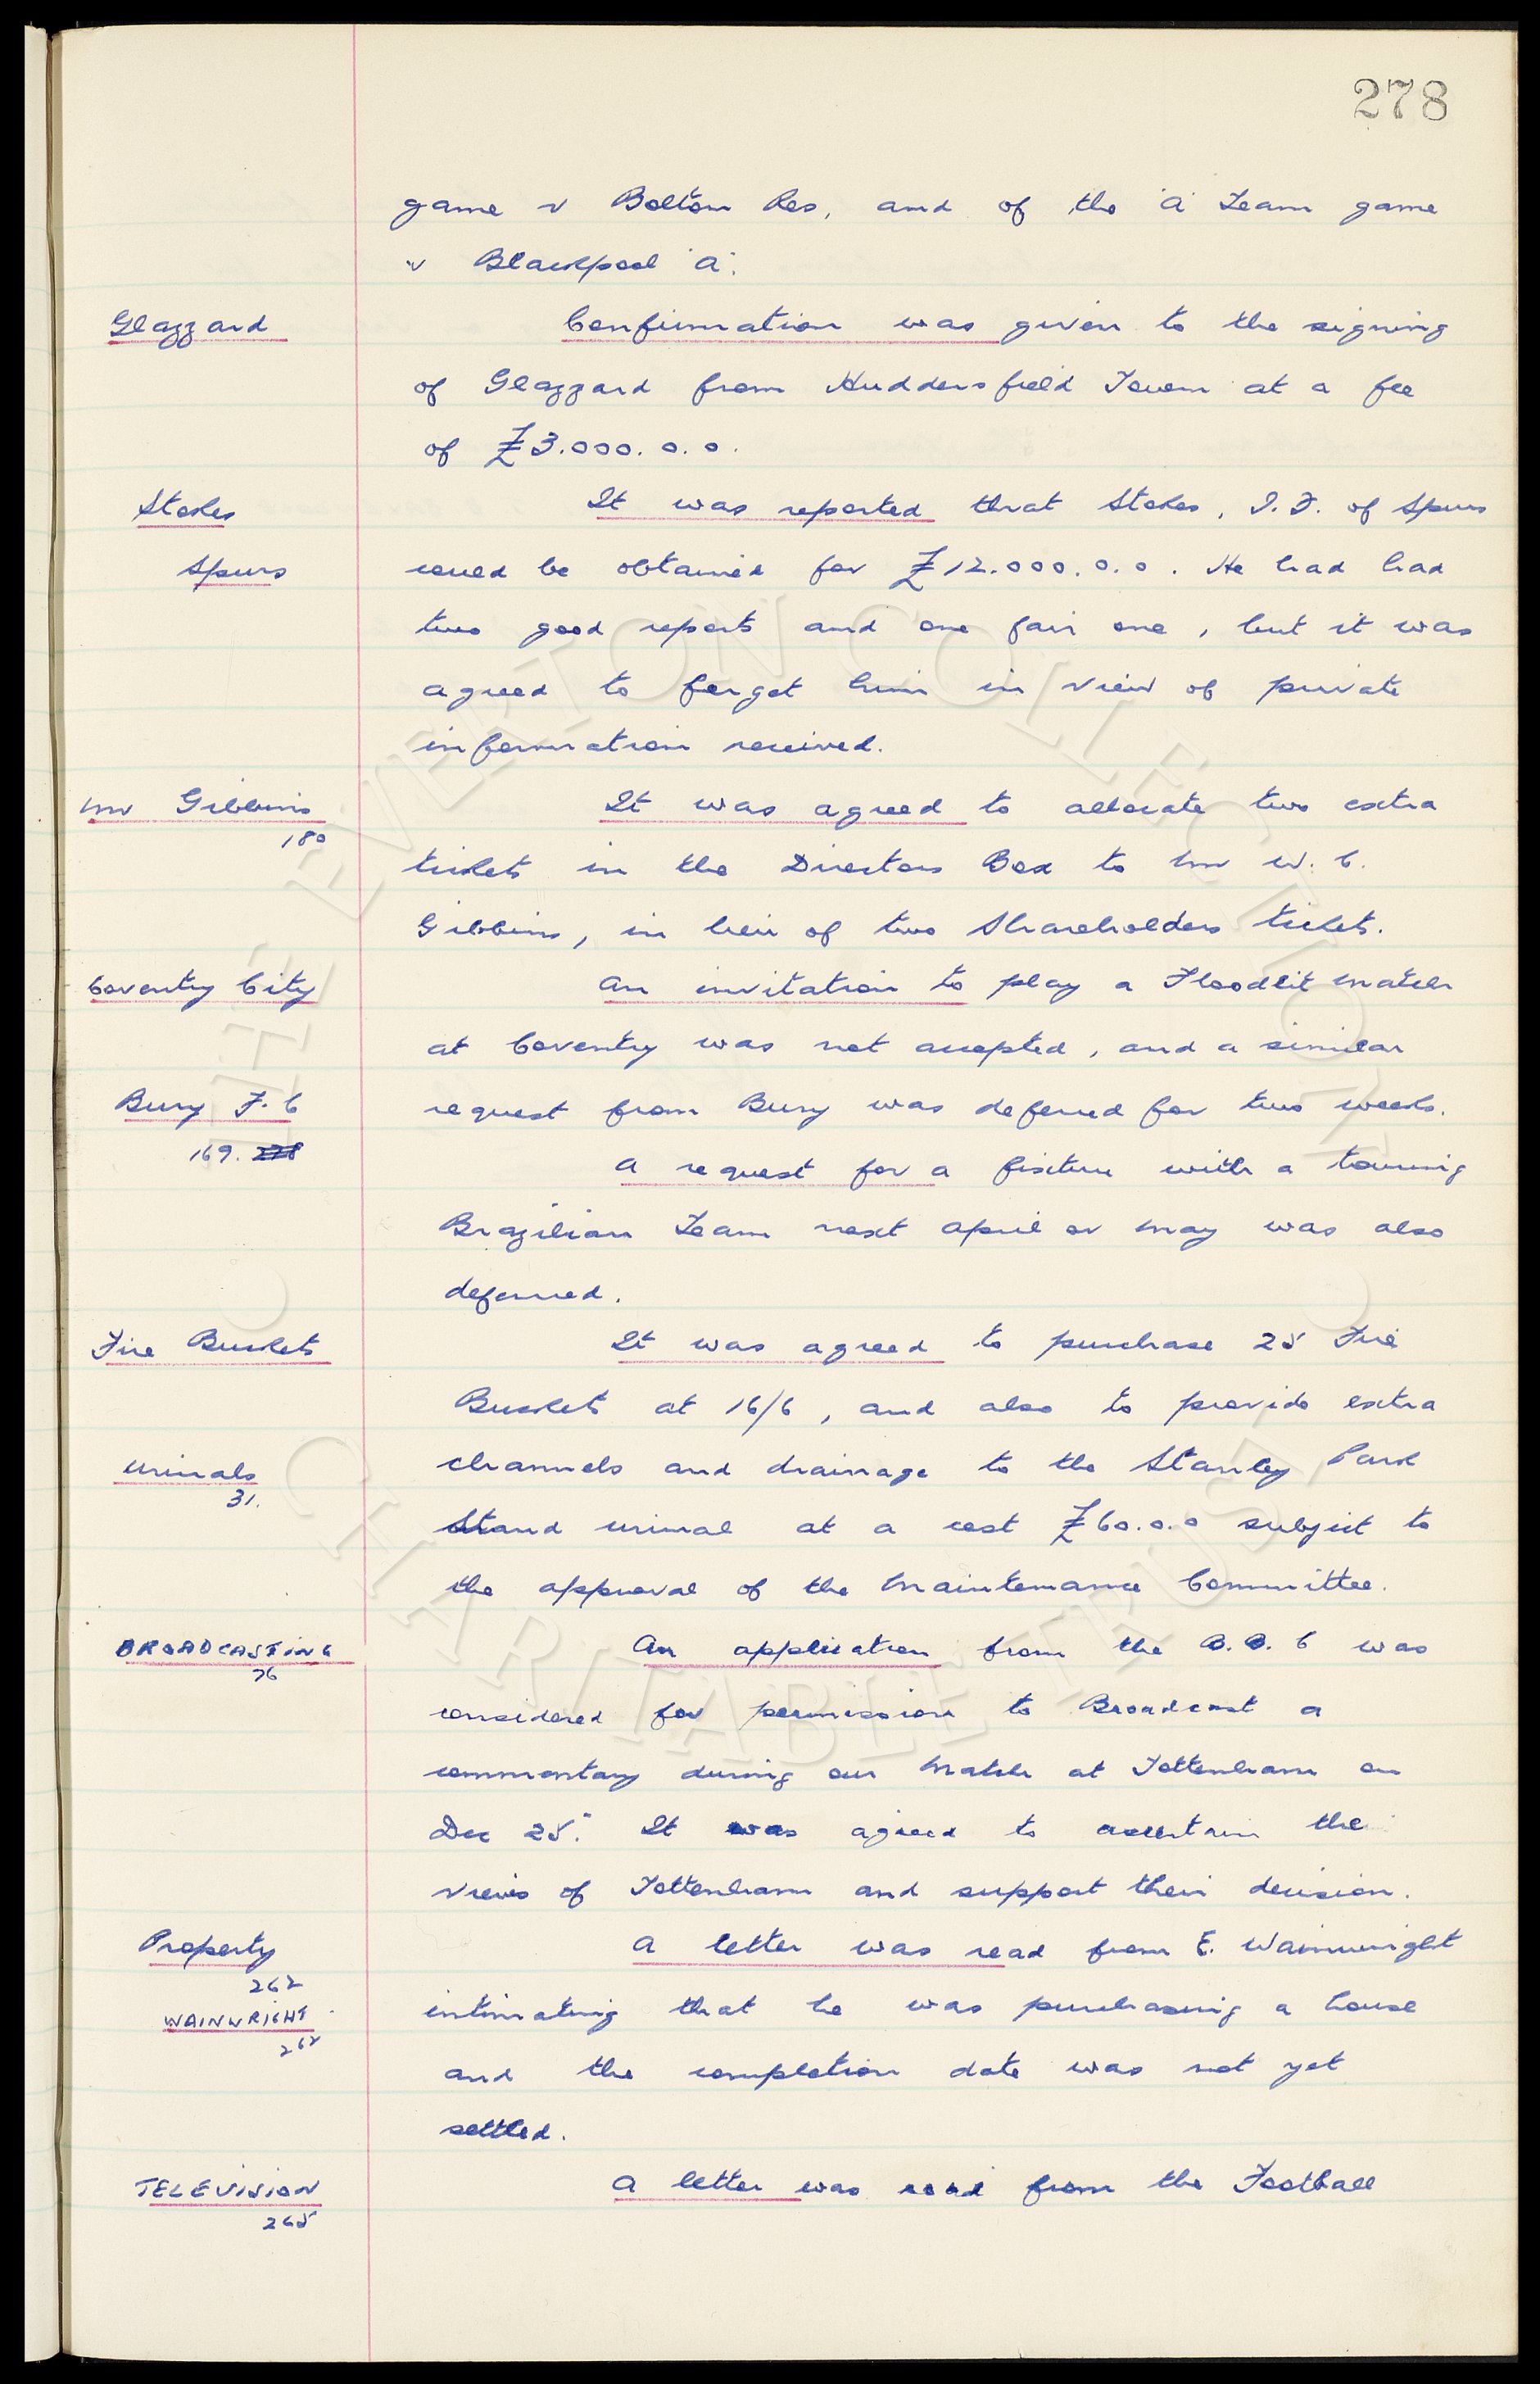 278
game v Bolton Res, and of the 'A' Team game
v Blackpool 'A'.
Glazzard
Confirmation was given to the signing
of Glazzard from Huddersfield Town at a fee
of £3.000.0.0.
Stokes
It was reported that Stokes, I.F. of Spurs
Spurs
could be obtained for £12.000.0.0. He had had
two good reports and one fair one, but it was
agreed to forget him in view of private
information received.
Mr Gibbins
180
It was agreed to allocate two extra
tickets in the Directors Box to Mr W. C.
Gibbins, in lieu of two Shareholders tickets.
Coventry City
An invitation to play a Floodlit match
at Coventry was not accepted, and a similar
Bury F.C
request from Bury was deferred for two weeks.
169.
A request for a fixture with a touring
Brazilian Team next April or May was also
deferred.
Fire Buckets
It was agreed to purchase 25 Fire
Buckets at 16/6, and also to provide extra
Urinals
31.
channels and drainage to the Stanley Park
Stand urinal at a cost £60.0.0 subject to
the approval of the Maintenance Committee.
BROADCASTING
76
An application from the B.B.C was
considered for permission to Broadcast a
commentary during our match at Tottenham on
Dec 25". It was agreed to ascertain the
views of Tottenham and support their decision.
Property
262
A letter was read from E. Wainwright
WAINWRIGHT
262
intimating that he was purchasing a house
and the completion date was not yet
settled.
TELEVISION
265
A letter was read from the Football
THE EVERTON COLLECTION
CHARITABLE TRUST